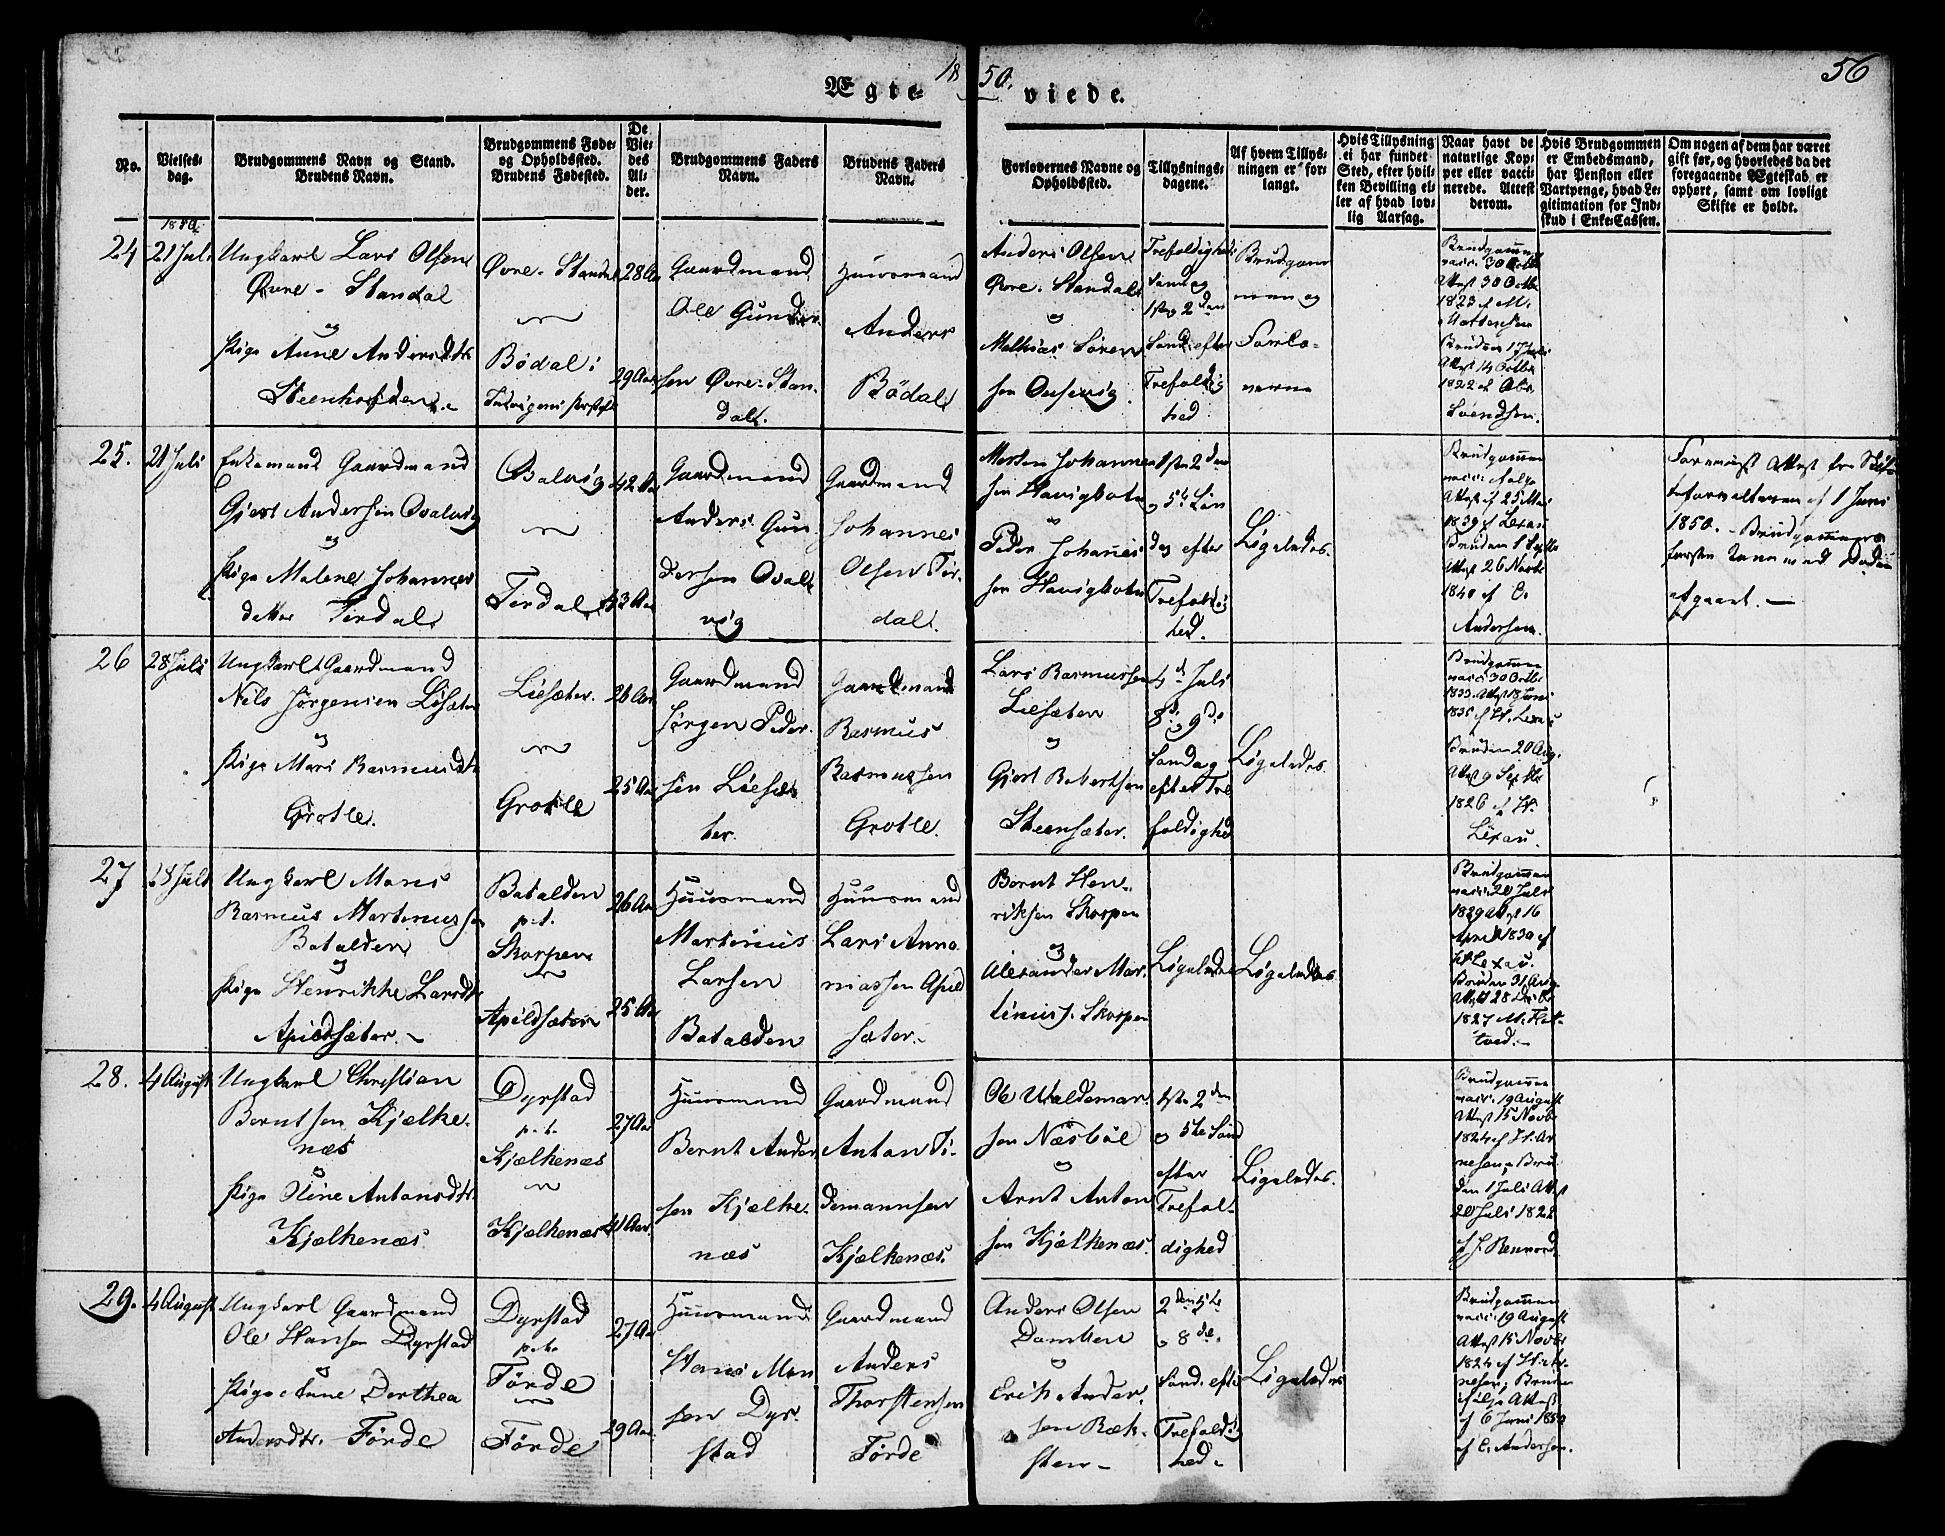 1850.
56
Ægteviede.
No.
Vielsesdag.
Brudgommens Navn og Stand.
Brudens Navn.
Brudgommens Føde-
og Opholdssted.
Brudens Fødested.
De
Vie-
des
Al-
der.
Brudgommens Faders
Navn.
Brudens Faders
Navn.
Forlovernes Navne og
Opholdssted.
Tillysnings-
dagene.
Af hvem Tillys-
ningen er for-
langt.
Hvis Tillysning
ei har fundet
Sted, efter hvil-
ken Bevilling el-
ler af hvad lov-
lig Aarsag.
Naar havt de
naturlige Kop-
per eller vacci-
nerede. Attest
derom.
Hvis Brudgommen
er Embedsmand,
har Pension eller
Vartpenge, hvad Le-
gitimation for Ind-
skud i Enke-Cassen.
Om nogen af dem har været
gift før, og hvorledes da det
foregaaende Ægteskab er
ophørt, samt om lovligt
Skifte er holdt.
1850.
24
21 Juli
Ungkarl Lars Olsen
Øvre-Standal
og
Pige Anne Andersdtr
Steenhofden
Øvre-Standal
Bødal i
28 Aar
29 Aar
Gaardmand
Ole Gunder-
sen Øvre-Stan-
dal.
Huusmand
Anders
Bødal
Anders Olsen
Øvre-Standal
og
Mathias Søren
sen
Trefoldigheds
Søndag
1ste og 2den
Sønd. efter
Trefoldig
hed
Brudgom
men og
Forlo-
verne
Brudgommen
vacc. 30 Octbr
Attest 30 Octbr
1823 af M.
Mortensen
Bruden 1 Juli
Attest 14 Octbr
1822 af Abr.
Svendsen.
25.
21 Juli
Enkemand Gaardmand
Giert Andersen Qvalvig
og
Pige Malene Johannes
datter Tirdal
Qvalvig
Tirdal
42 Aar
43 Aar
Gaardmand
Anders Gun
dersen Qval
vig
Gaardmand
Johannes
Olsen Tir-
dal.
Morten Johanne
sen Havigbotn
og
Peder Johannes
sen Havigbotn
1ste 2den
og 5te Søn
dag efter
Trefoldig
hed.
Ligeledes.
Brudgommen
vacc. ifølge
Attest af 25 Mai
1839 af Lexau
Bruden 8 Septbr
Attest 26 Novbr
1840 af E.
Andersen.
Forevist Attest fra Skifte
forvalteren af 1 Juni
1850. - Brudgommens
første Kone ved Døden
afgaaet. —
26
28 Juli
Ungkarl Gaardmand
Nils Jørgensen Liesæter
og
Pige Mari Rasmusdtr
Grotle.
Liesæter.
Grotle
26 Aar
25 Aar
Gaardmand
Jørgen Peder-
sen Liesæ
ter.
Gaardmand
Rasmus
Rasmussen
Grotle.
Lars Rasmussen
Liesæter
og
Giert Robertsen
Steensæter.
4de Juli
8de og 9de
Søndag
efter Tre
foldighed
Ligeledes.
Brudgommen
vacc. 30 Octbr
1833. Attest 18 Juni
1835 af H. Lexau
Bruden 20 Aug.
Attest 9 Septbr
1826 af H.
Lexau.
27
28 Juli
Ungkarl Mons
Rasmus Martinussen
Batalden
og
Pige Henrikke Larsdtr
Apildsæter. -
Batalden
p.t.
Skorpen
Apildsæter
26 Aar
25 Aar
Huusmand
Martinus
Larsen
Batalden
Huusmand
Lars Anno
niassen Apild
sæter.-
Bernt Hen-
riksen Skorpen
og
Alexander Mar-
tinius. Skorpen
Ligeledes
Ligeledes.
Brudgommen
vacc. 20 Juli
1829 Attest 16
April 1830 af
H. Lexau.
Bruden 31 Aug
Attest 28 Decbr
1827 M.
28.
4 August
Ungkarl Christian
Berntsen Kjelke-
næs
og
Pige Oline Antonsdtr.
Kjelkenæs
Dyrstad
p.t.
Kjelkenæs
Kjelkenæs
27 Aar
41 Aar.
Huusmand
Bernt Ander
sen Kjelke-
næs
Gaardmand
Anton Ti-
demannsen
Kjelkenæs.
Ole Waldemar-
sen Næsbøe
og
Arnt Anton
sen Kjelkenæs.
1ste 2den
og 5te Sønd
efter
Trefol-
dighed
Ligeledes.
Brudgommen
vacc. 19 August
Attest 15 Novbr
1824 af H. Ar
nesen. Bru
den 1 Juli Attest
20 Juli 1822
af J. Rennord
29.
4 August
Ungkarl Gaardmand
Ole Hansen Dyrstad
og
Pige Anne Dorthea
Andersdtr. Førde
Dyrstad
p.t.
Førde
Førde
27 Aar
29 Aar.
Huusmand
Hans Mon
sen Dyr-
stad
Gaardmand
Anders
Thorstensen
Førde
Anders Olsen
Domben
og
Erik Ander-
sen Ræk-
sten -
2den 5te
og 8de.
Sønd. efter
Trefoldig
hed.
Ligeledes
Brudgommen
vacc. 19 August
Attest 15 Novbr
1824 af H. Ar-
nesen, Bruden
ifølge Attest
af 6 Juni 1850
af E. Andersen.